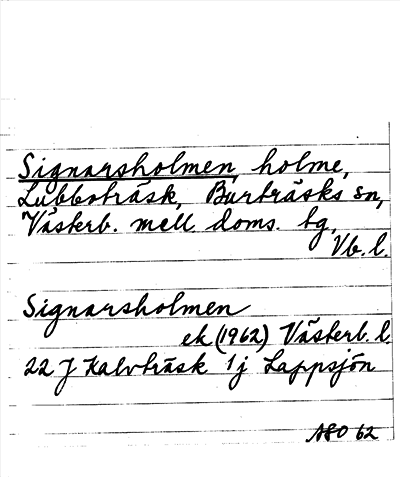 Signarsholmen, holme,
Lubboträsk, Burträsks sn,
Västerb. mell. doms. tg,
Vb. l.
Signarsholmen
ek (1962) Västerb. l
22 J Kalvträsk 1j Lappsjön
ASO 62